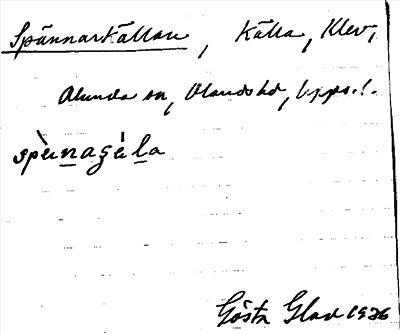 Spännarkällan, Källa, Klev,
Alunda sn, Olands hd, Upps. l.
spὲnagéla
Gösta Glad 1926